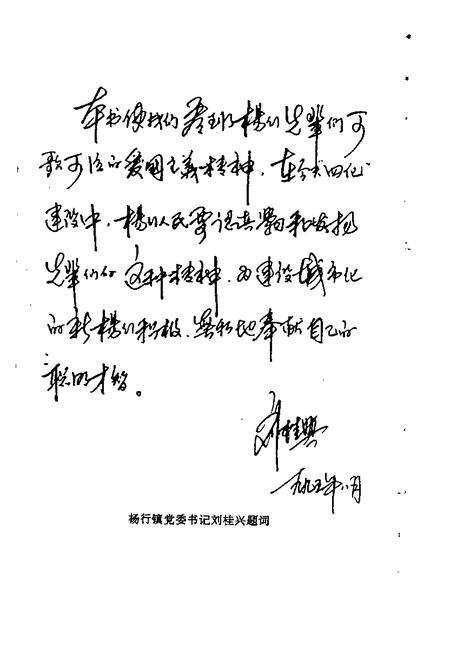 本书使我们看到了杨行先辈们可
歌可泣的爱国主义精神，在今天四化
建设中，杨行人民要认真学习和发扬
先辈们的这种精神，为建设城市化
的新杨行积极、无私地奉献自己的
聪明才智。
刘桂兴
一九九五年八月
杨行镇党委书记刘桂兴题词